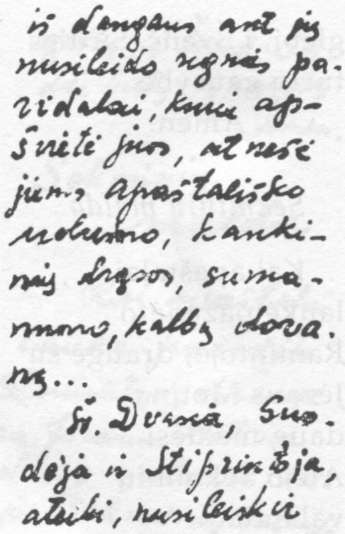 iš dangaus ant jų
nusileido ugnies pa-
vidalai, kurie ap-
švietė juos, atnešė
jiems apaštališko
uolumo, kanki-
nių drąsos, suma-
numo, kalbų dova-
ną...
Šv. Dvasia, Guo-
dėja ir Stiprintoja,
ateiki, nusileisk ir